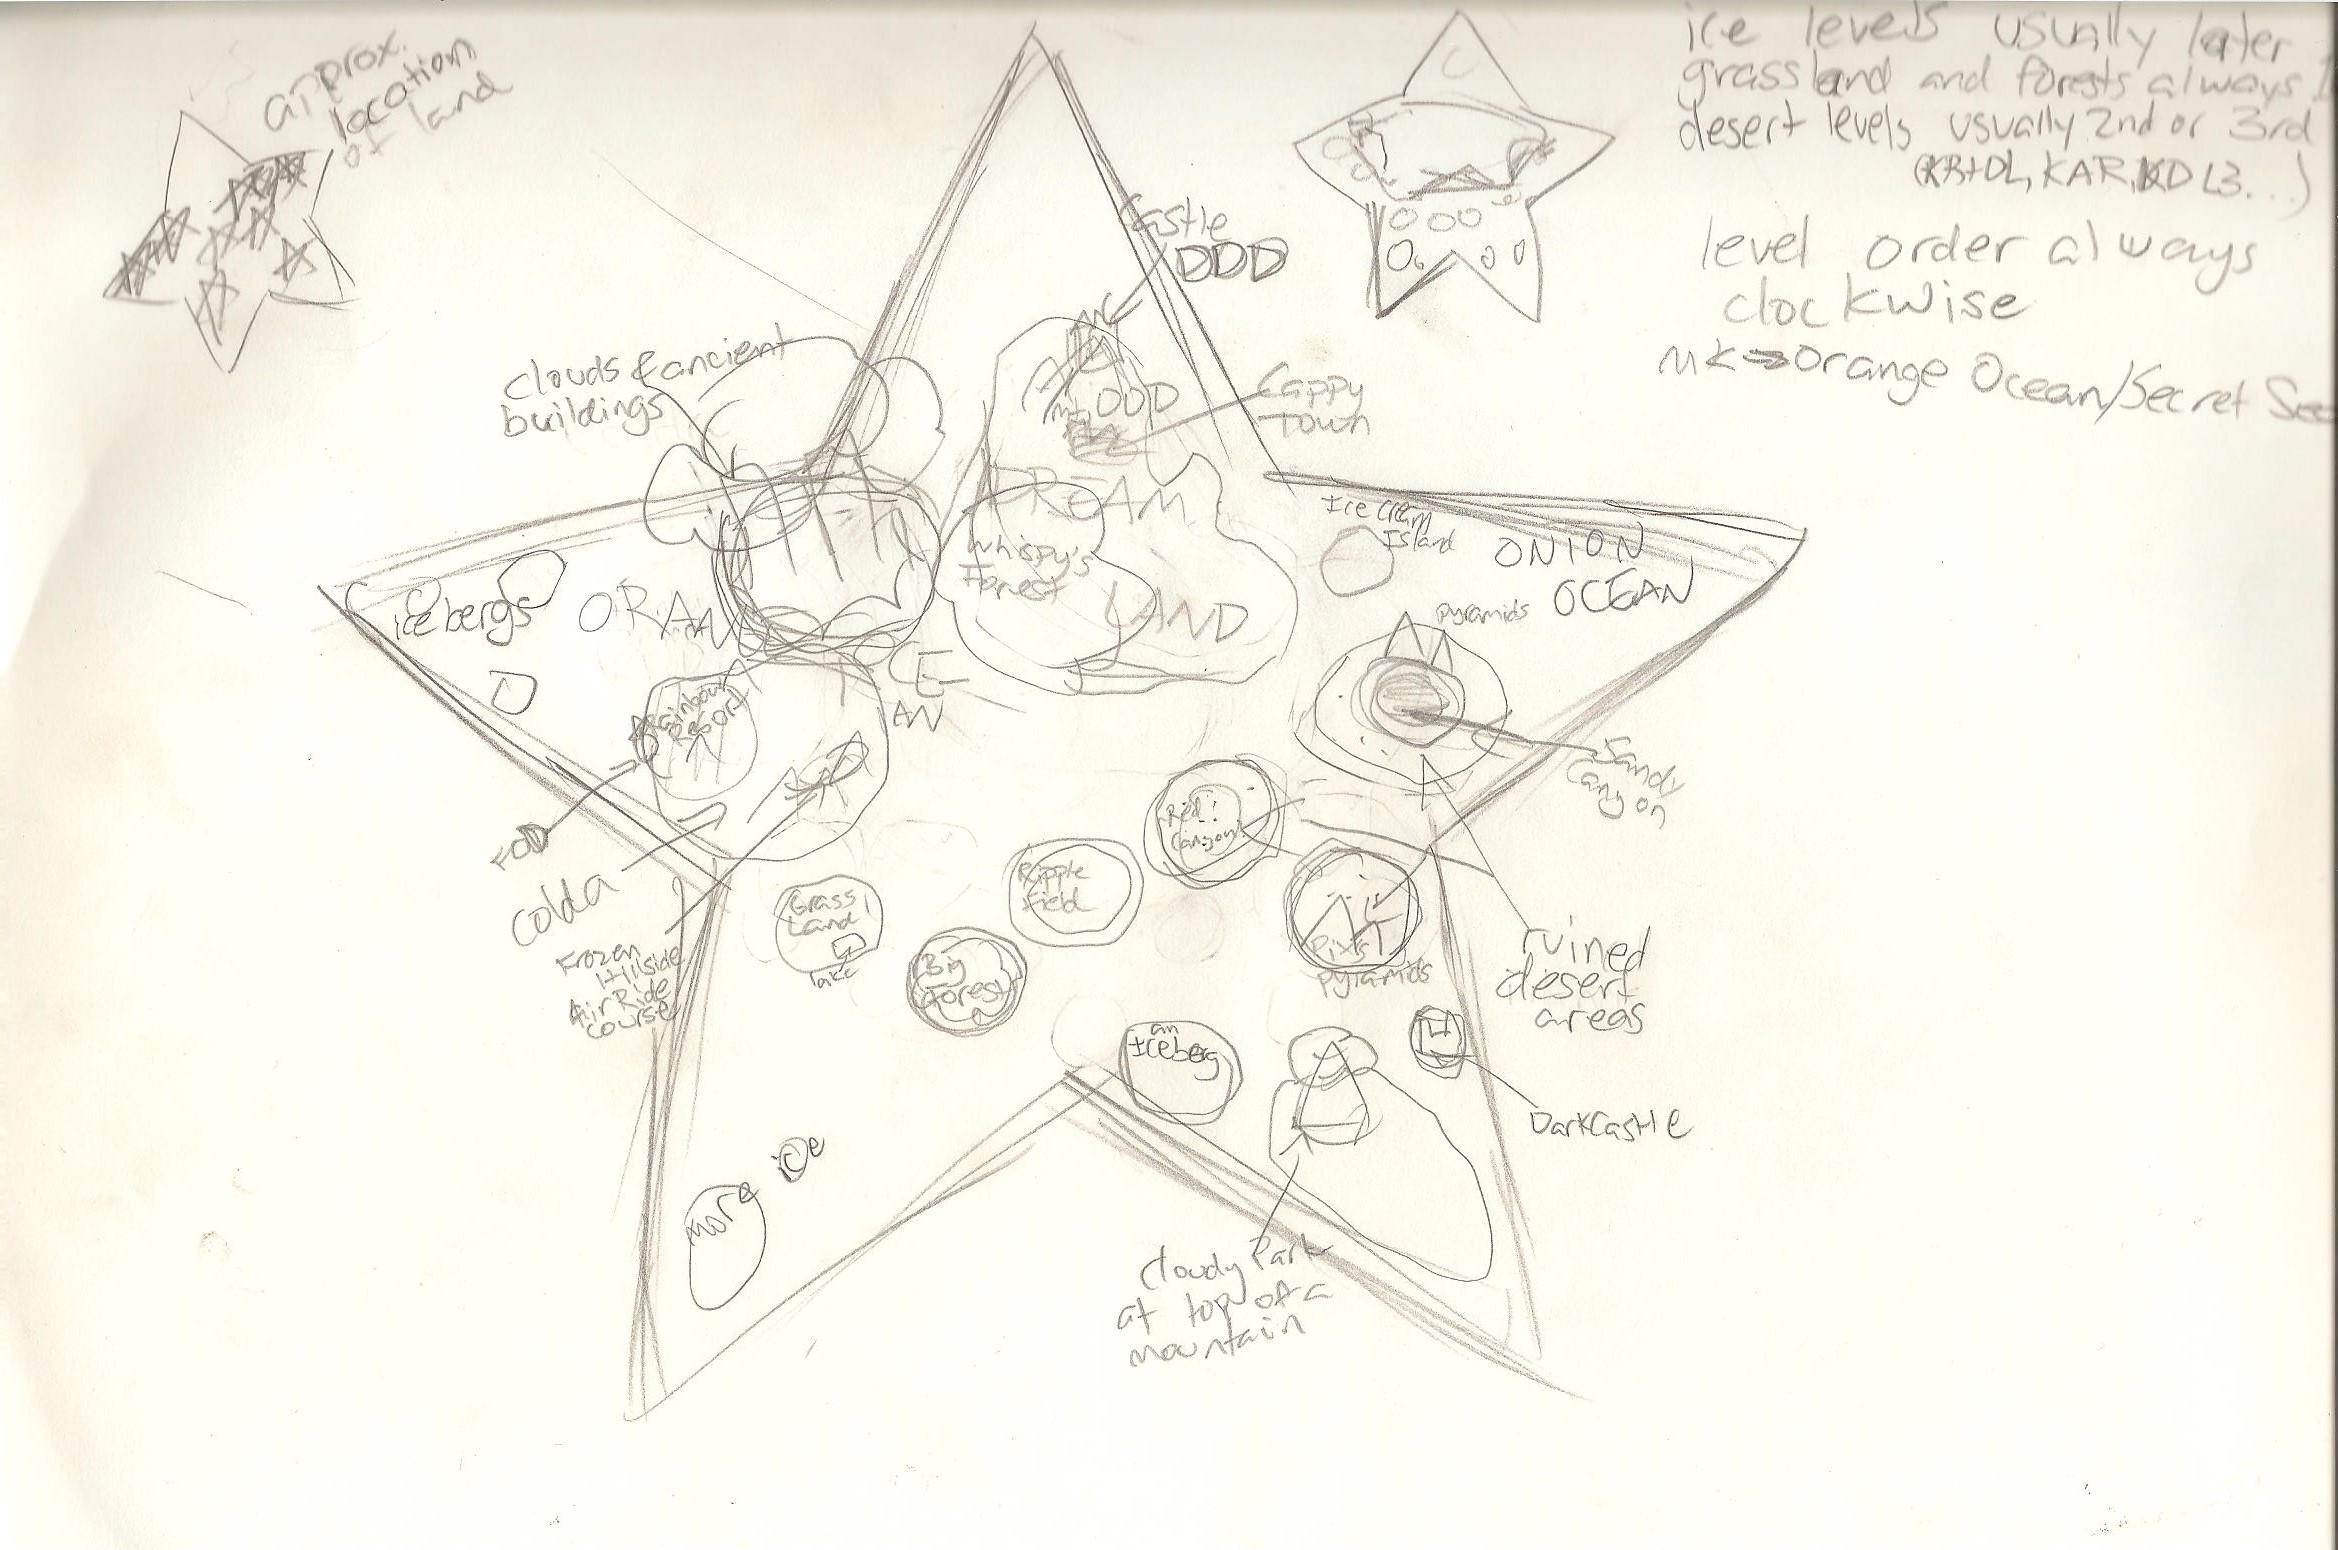 approx.
location
of land
ice levels usually later
grassland and forests always 1
desert levels usually 2nd or 3rd
(KRtDL, KAR, KDL3...)
level order always
clockwise
MK → Orange Ocean/Secret Sea
Castle
DDD
clouds & ancient
buildings
Mt. DDD
Cappy
Town
DREAM
LAND
Whispy's
Forest
Ice Cream
Island
ONION
OCEAN
pyramids
icebergs
ORAN
CE
AN
Rainbow
Resort
Sandy
Canyon
Red
Canyon
Ripple
Field
FOD
Colda
Grass
Land
lake
Big
Forest
Pix's
pyramids
ruined
desert
areas
Frozen
Hillside
Air Ride
course
an
Iceberg
Dark Castle
more ice
Cloudy Park
at top of a
mountain